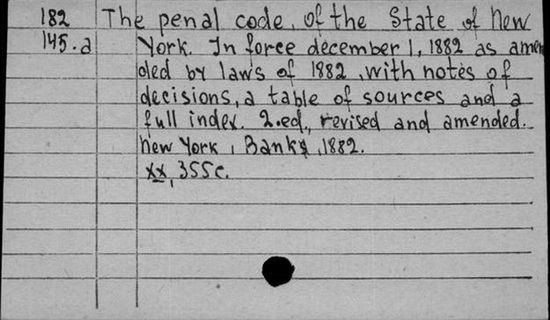 182 The penal code, of the State of New
145.a York. In force december 1, 1882 as amen
ded by laws of 1882, with notes of
decisions, a table of sources and a
full index. 2.ed., revised and amended.
New York, Banks, 1882.
xx, 355c.